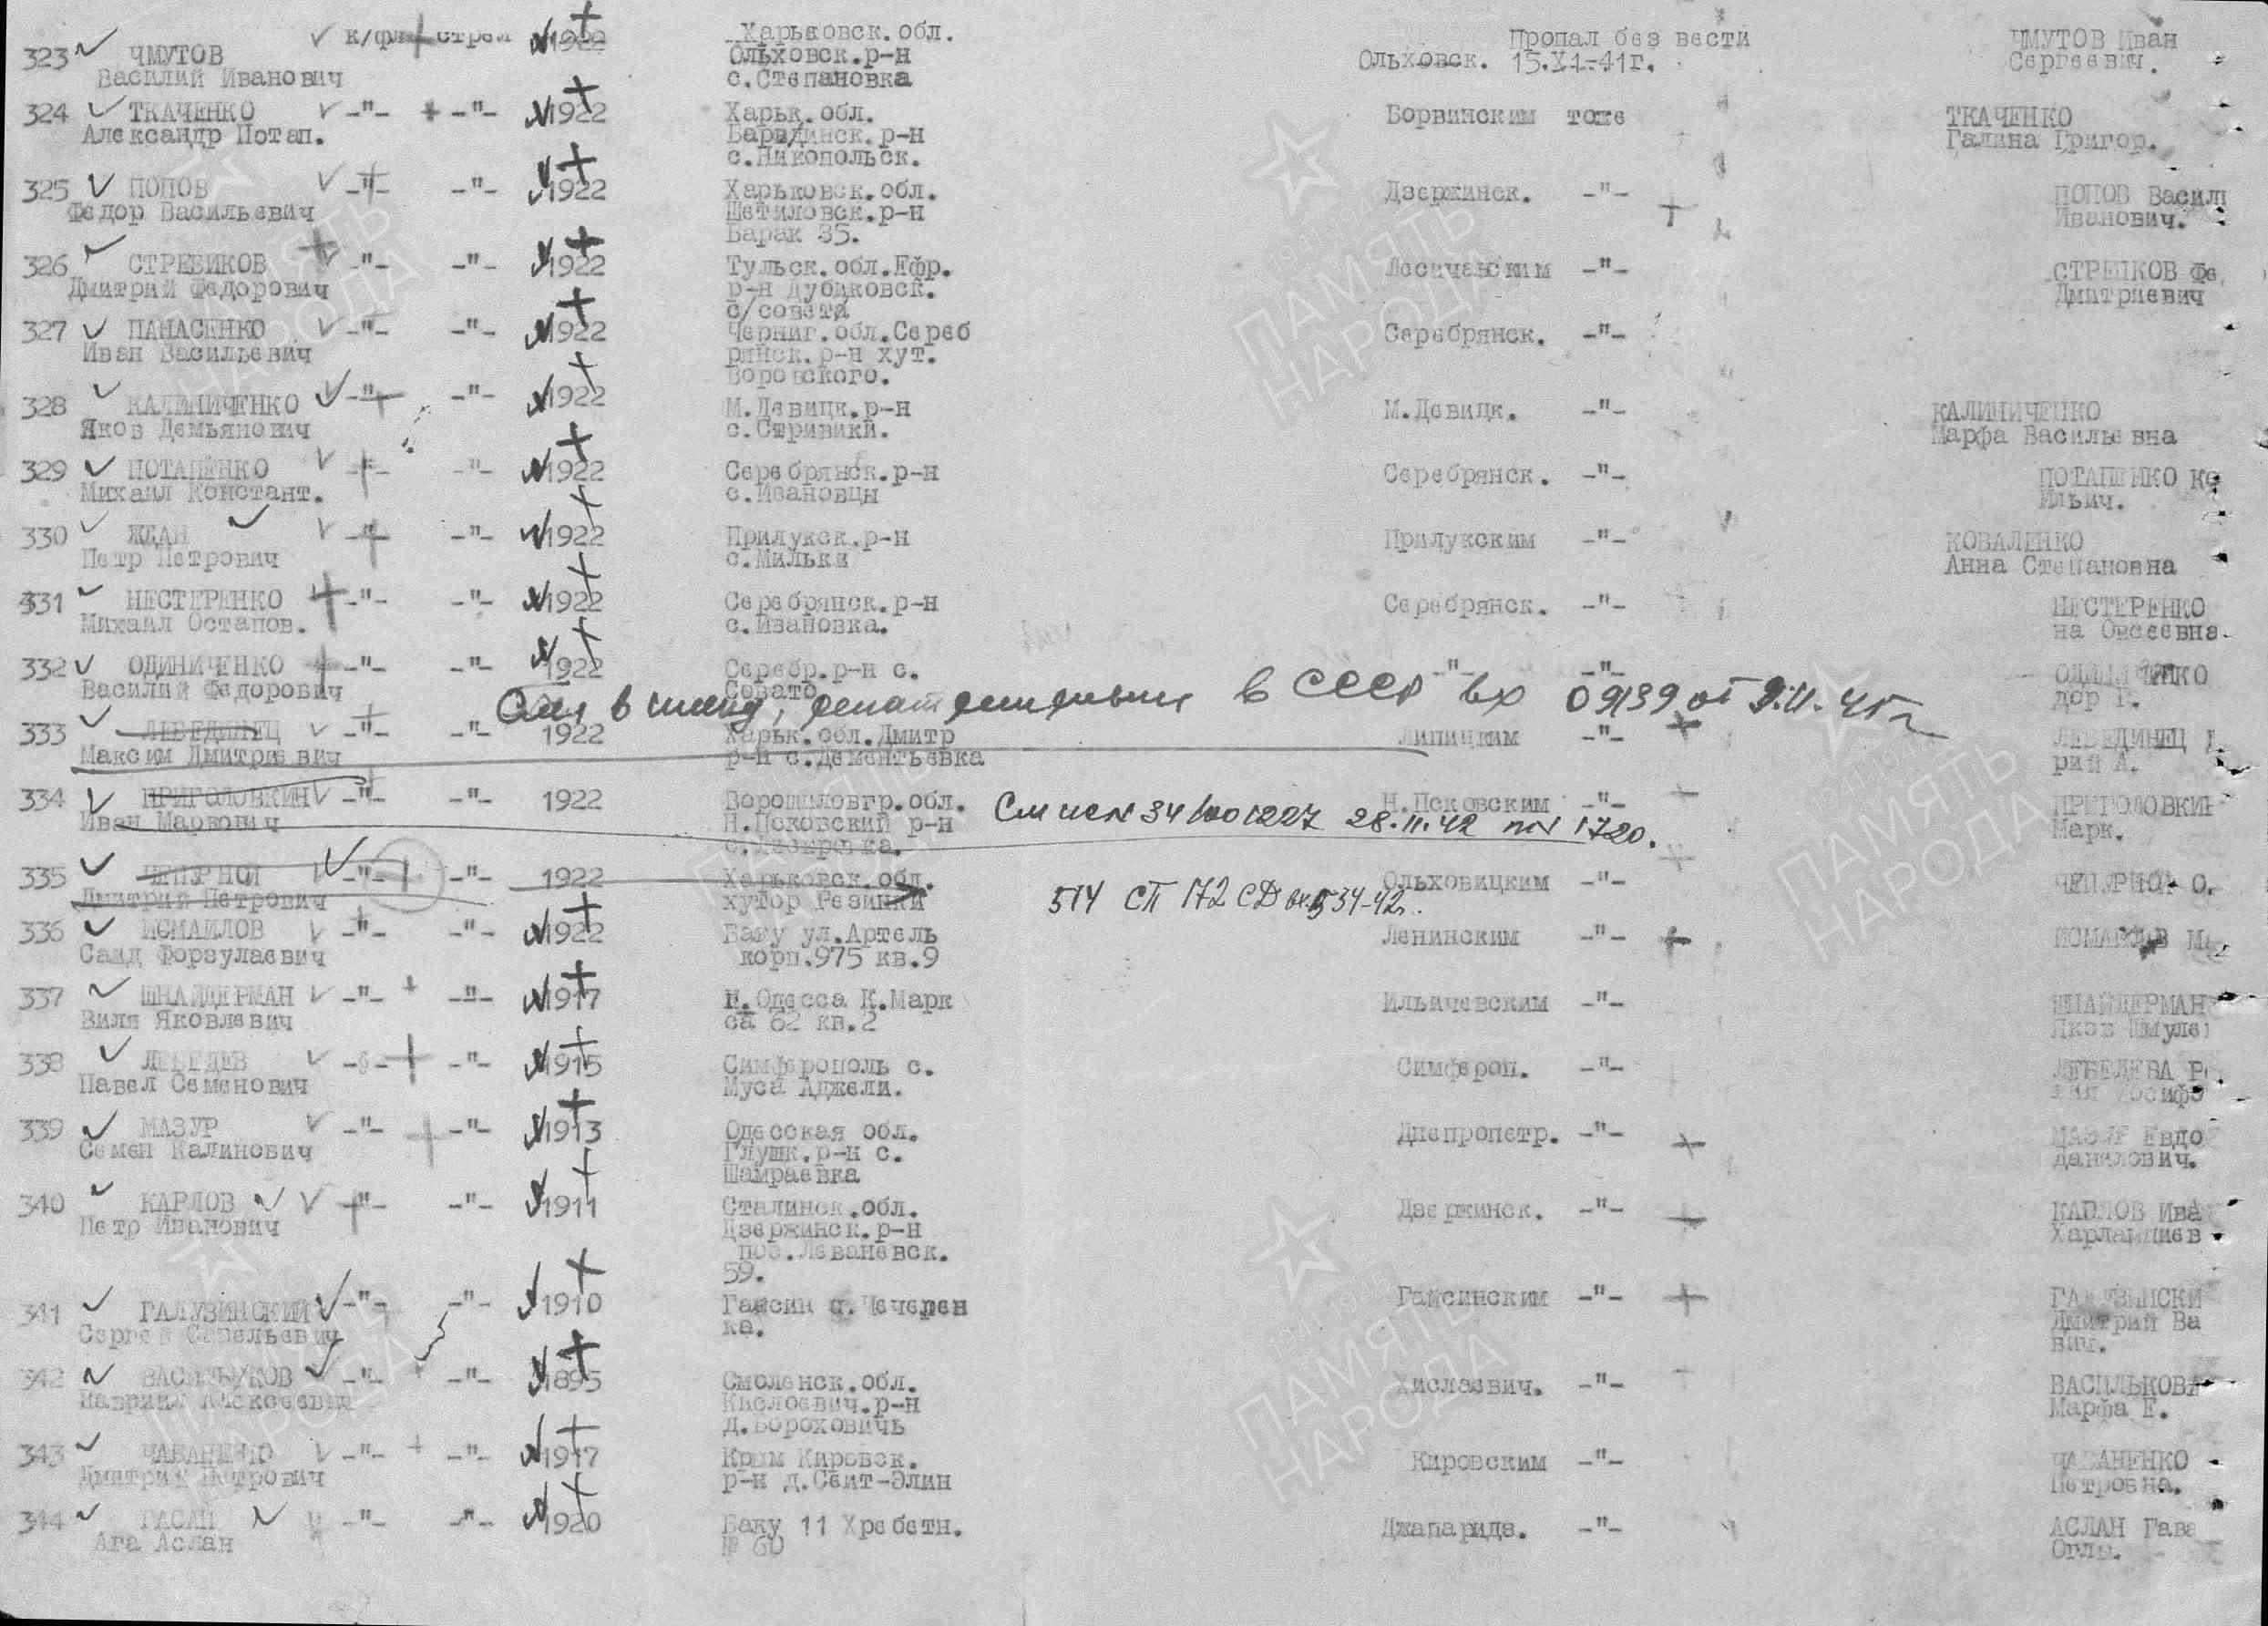 323 ЧМУТОВ к/фл стрел 1922 Харьковск.обл. Пропал без вести ЧМУТОВ Иван
Василий Иванович Ольховск.р-н Ольховск. 15.XI-41г. Сергеевич.
с.Степановка
324 ТКАЧЕНКО -"- -"- 1922 Харьк.обл. Борвинским тоже ТКАЧЕНКО
Александр Потап. р-н Галина Григор.
с.Никопольск.
325 ПОПОВ -"- -"- 1922 Харьковск.обл. Дзержинск. -"- ПОПОВ Васили
Федор Васильевич Шетиловск.р-н Иванович.
Барак 35.
326 СТРЕБИКОВ -"- -"- 1922 Тульск.обл.Ефр. Лесичанским -"- Фе
Дмитрий Федорович р-н Дубиковск. Дмитриевич
с/совета
327 ПАНАСЕНКО -"- -"- 1922 Черниг.обл.Сереб Серебрянск. -"-
Иван Васильевич рянск.р-н хут.
Воровского.
328 КАЛИНИЧЕНКО -"- -"- 1922 М.Девицк.р-н М.Девицк. -"- КАЛИНИЧЕНКО
Яков Демьянович с.Стривики. Марфа Васильевна
329 ПОТАПЕНКО -"- 1922 Серебрянск.р-н Серебрянск. -"- ПОТАПЕНКО Ко
Михаил Констант. с.Ивановцы Ильич.
330 ЖДАН -"- -"- 1922 Прилукск.р-н Прилукским -"- КОВАЛЕНКО
Петр Петрович с.Мильки Анна Степановна
331 НЕСТЕРЕНКО -"- -"- 1922 Серебрянск.р-н Серебрянск. -"- НЕСТЕРЕНКО
Михаил Остапов. с.Ивановка. на Овсеевна.
332 ОДИНИЧЕНКО -"- -"- 1922 Серебр.р-н с. -"- -"- ОДИНИЧЕНКО
Василий Федорович дор Г.
в СССР вх 09139 от 9.11.45г
333 ЛЕБЕДИНЕЦ -"- -"- 1922 Харьк.обл.Дмитр Липицким -"- ЛЕБЕДИНЕЦ Д
Максим Дмитриевич р-н с.Дементьевка рий А.
334 ПРИГОЛОВКИН -"- -"- 1922 Ворошиловгр.обл. Н.Псковским -"- ПРИГОЛОВКИН
Иван Маркович Н.Псковский р-н 28.11.42 1720. Марк.
335 ЧЕПУРНОЙ -"- -"- 1922 Харьковск.обл. Ольховицким -"-
Дмитрий Петрович хутор Резинки 514 СП 172 СД вх.534-42г.
336 ИСМАИЛОВ -"- -"- 1922 Баку ул.Артель Ленинским -"- ИСМАИЛОВ
Саид корп.975 кв.9
337 ШНАЙДЕРМАН -"- -"- 1917 г.Одесса К.Марк Ильичевским -"- ШНАЙДЕРМАН
Виля Яковлевич са 62 кв.2 Яков Шмулев
338 ЛЕБЕДЕВ -"- -"- 1915 Симферополь с. Симфероп. -"- ЛЕБЕДЕВА
Павел Семенович Муса Аджели.
339 МАЗУР -"- -"- 1913 Одесская обл. Днепропетр. -"- МАЗУР Евдо
Семен Калинович Глушк.р-н с. Данилович.
Шамраевка
340 КАРЛОВ -"- -"- 1911 Сталинск.обл. Дзержинск. -"- КАРЛОВ Ива
Петр Иванович Дзержинск.р-н Харлампиев
пос.Леваневск.
59.
341 ГАЛУЗИНСКИЙ -"- -"- 1910 Гайсин с.Чечелен Гайсинским -"- ГАЛУЗИНСКИ
Сергей Савельевич ка. Дмитрий Ва
вич.
342 ВАСИЛЬКОВ -"- -"- 1895 Смоленск.обл. Хиславич. -"- ВАСИЛЬКОВА
Гавриил Алексеевич Кислоевич.р-н Марфа Е.
д.Вороховичь
343 ЧАБАНЕНКО -"- -"- 1917 Крым Кировск. Кировским -"- ЧАБАНЕНКО
Дмитрий Петрович р-н д.Сеит-Элин Петровна.
344 ГАСАН -"- -"- 1920 Баку 11 Хребетн. Джапаридз. -"- АСЛАН Гава
Ага Аслан № 60 Оглы.
ПАМЯТЬ
НАРОДА